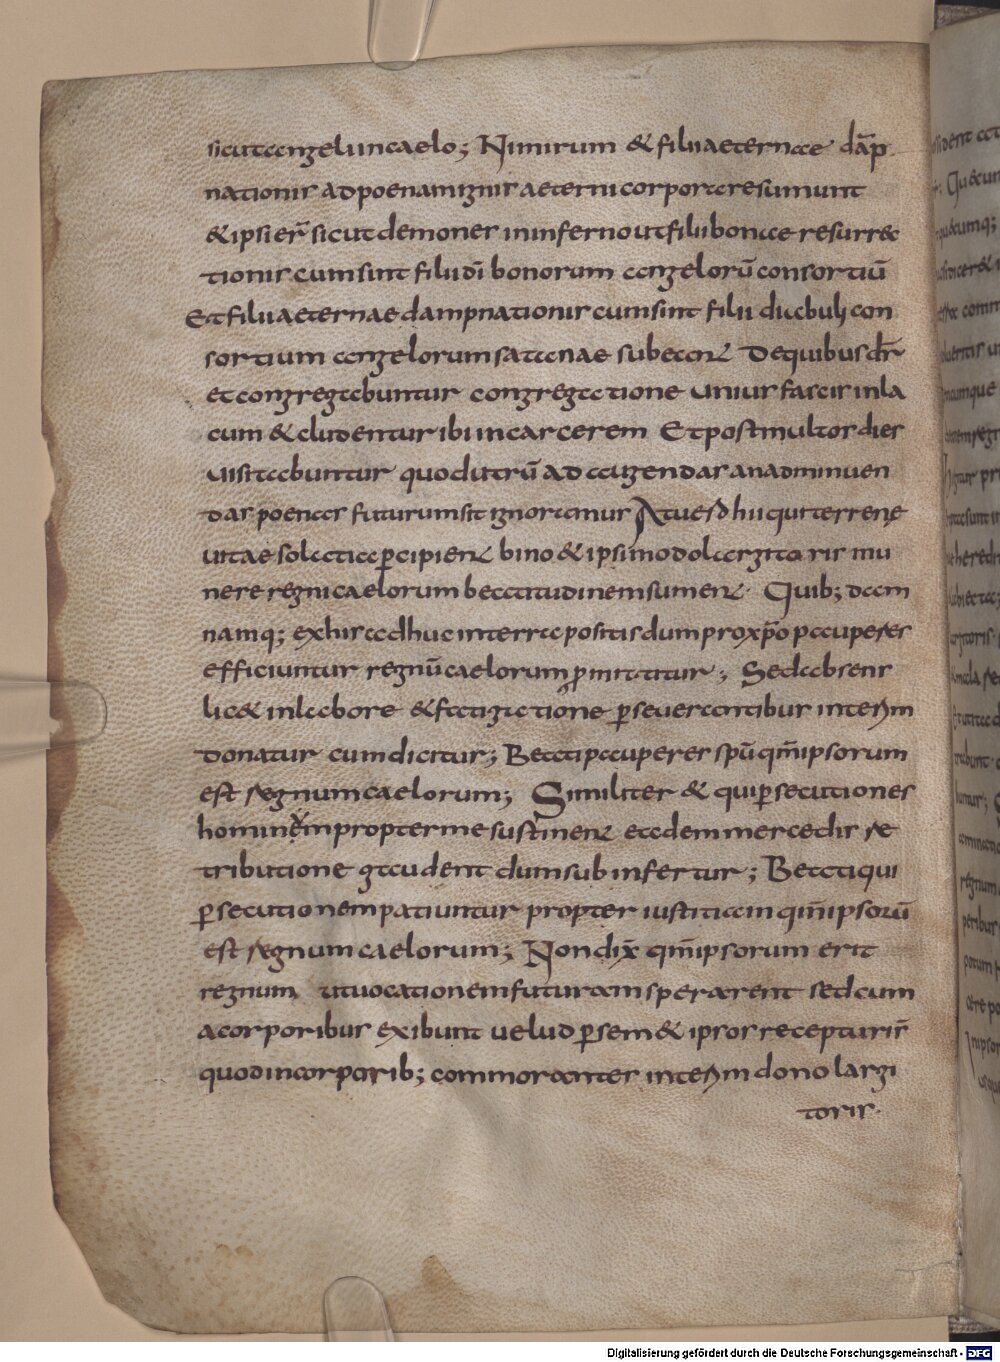 sicut angeli in caelo; Nimirum & filii aeternae dāp
nationis ad poenam ignis aeterni corpora resumunt
& ipsi er̄ sicut demones in inferno ut filii bonae resurrec
tionis cum sint filii dī bonorum angelorū consortiū
Et filii aeternae dampnationis cum sint filii diabuli con
sortium angelorum satanae subeant De quibus dr̄
et congregabuntur congregatione unius fascis in la
cum & cludentur ibi in carcerem Et post multos dies
uisitabuntur quod utrū ad augendas an adminuen
das poenas futurum sit ignoramus At uero hii qui terrene
uitae solatia ꝑcipient bino & ipsi modo largitoris mu
nere regni caelorum beatitudinem sument. Quib; dam
namq; ex his adhuc in terra positis dum pro xp̄o pauperes
efficiuntur regnū caelorum ꝓmittitur; Sed absens
lic& in labore & fatigatione ꝑseuerantibus interim
donatur cum dicitur; Beati pauperes spū qm̄ ipsorum
est regnum caelorum; Similiter & qui ꝑsecutiones
hominem propter me sustinent eadem mercedis re
tributione gaudent dum subinfertur; Beati qui
ꝑsecutionem patiuntur propter iustitiam qm̄ ipsorū
est regnum caelorum; Non dix̄ qm̄ ipsorum erit
regnum ut uocationem futuram sperarent sed cum
a corporibus exibunt uelud ꝑsem& ipsos recepturis
quod in corporib; commorantes interim dono largi
toris.
Digitalisierung gefördert durch die Deutsche Forschungsgemeinschaft - DFG